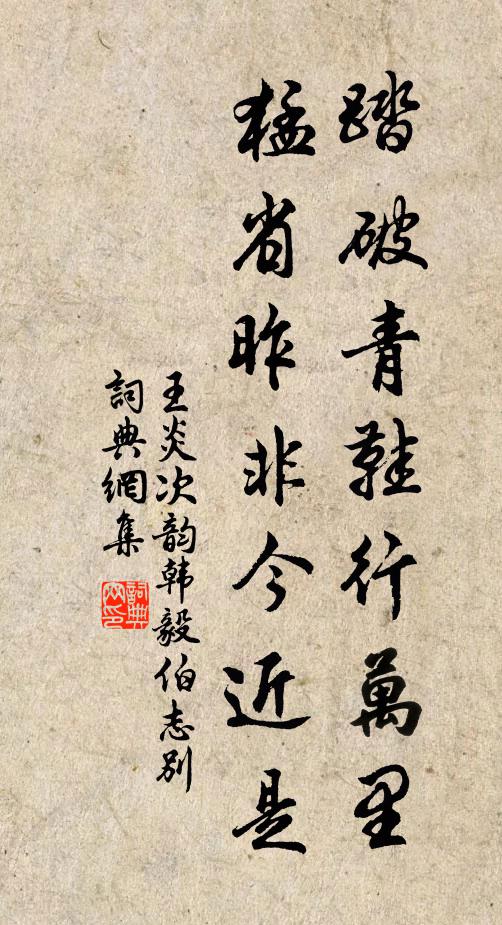 踏破青鞋行萬里
猛省昨非今近是
王炎次韵韩毅伯志别
詞典網集
詞典網印